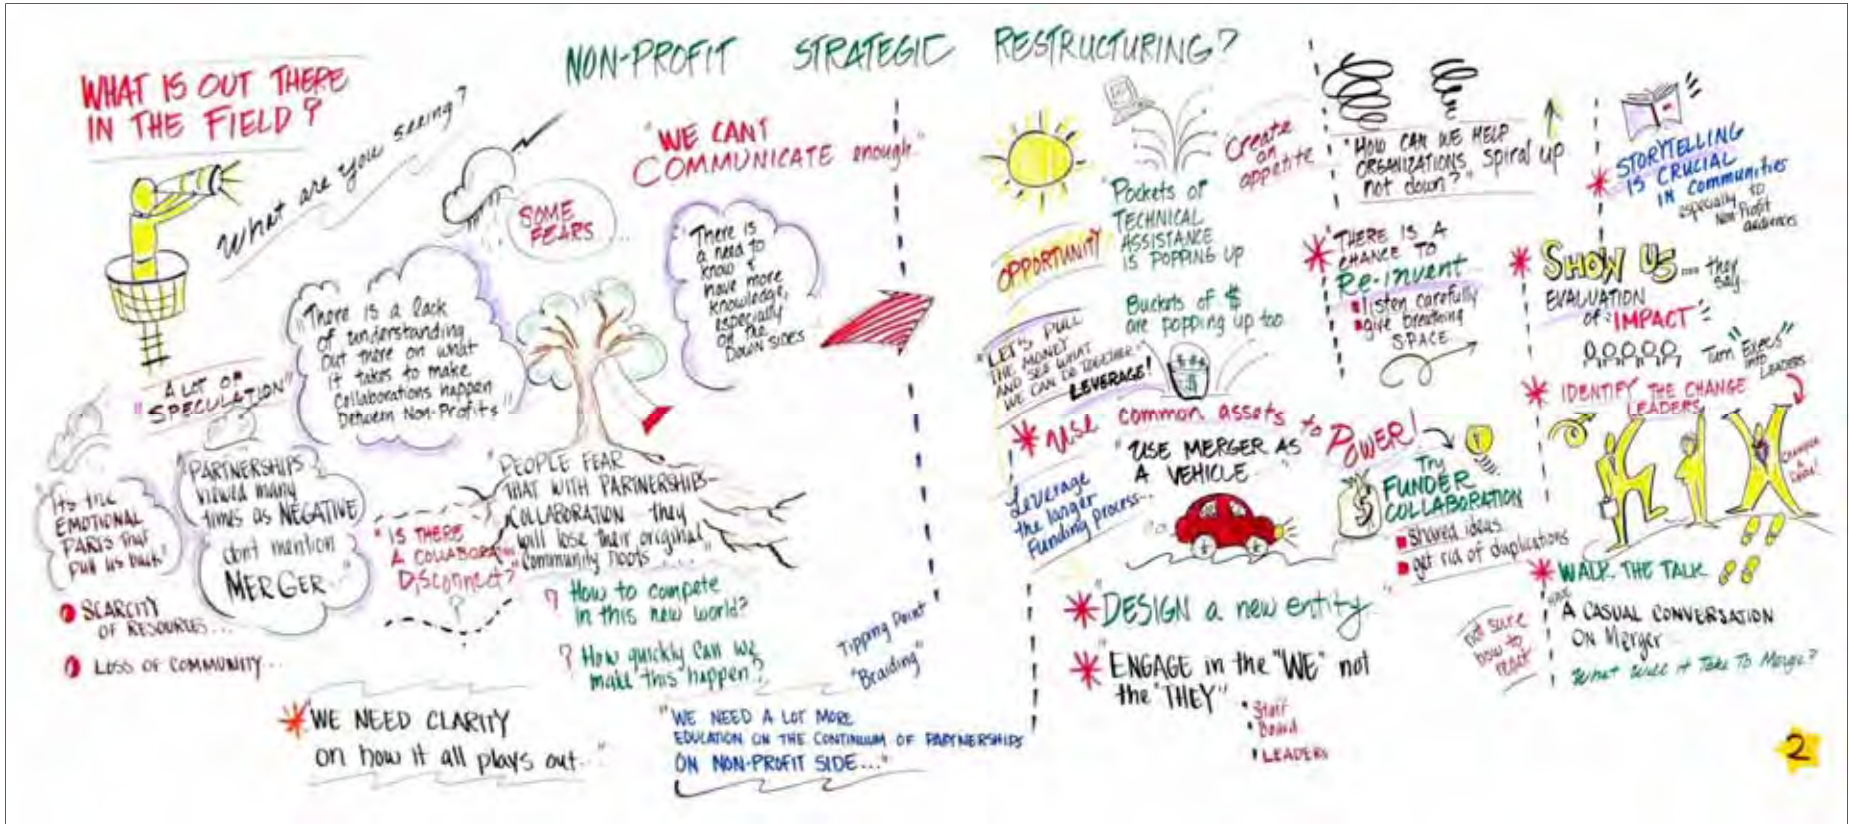 NON-PROFIT STRATEGIC RESTRUCTURING?
WHAT IS OUT THERE
IN THE FIELD?
What are you seeing?
"A LOT OF
SPECULATION"
SOME
FEARS...
"WE CAN'T
COMMUNICATE enough"
"There is a lack
of understanding
out there on what
it takes to make
collaborations happen
between Non-Profits"
"There is
a need to
know &
have more
knowledge,
especially
on the
DOWN SIDES
"It's the
EMOTIONAL
PARTS that
pull us back"
"PARTNERSHIPS
viewed many
times as NEGATIVE
don't mention
MERGER..."
SCARCITY
OF RESOURCES...
LOSS OF COMMUNITY...
"IS THERE
A COLLABORATION
Disconnect?"
?
"PEOPLE FEAR
THAT WITH PARTNERSHIPS-
COLLABORATION they
will lose their original
Community roots..."
? How to compete
in this new world?
? How quickly can we
make this happen?
Tipping Point
"Braiding"
"WE NEED CLARITY
on how it all plays out..."
"WE NEED A LOT MORE
EDUCATION ON THE CONTINUUM OF PARTNERSHIPS
ON NON-PROFIT SIDE..."
OPPORTUNITY
"Pockets of
TECHNICAL
ASSISTANCE
IS POPPING UP
Buckets of $
are popping up too
"Create
an
appetite
"LET'S PULL
THE MONEY
AND SEE WHAT
WE CAN DO TOGETHER."
LEVERAGE!
Use common assets to POWER!
Leverage
the larger
Funding process...
"USE MERGER AS
A VEHICLE..."
"DESIGN a new entity"
"ENGAGE in the "WE" not
the "THEY"
Staff
Board
LEADERS
"HOW CAN WE HELP
ORGANIZATIONS spiral up
not down?"
"THERE IS A
CHANCE TO
Re-invent
listen carefully
give breathing
SPACE
Try
FUNDER
COLLABORATION
shared ideas
get rid of duplications
STORYTELLING
IS CRUCIAL
IN communities
especially to
Non-Profit
audiences
SHOW US... they
say
EVALUATION
of "IMPACT"
Turn "Execs"
into
LEADERS
IDENTIFY THE CHANGE
LEADERS
WALK THE TALK
HAVE
A CASUAL CONVERSATION
ON Merger
What Will it Take To Merge?
not sure
how to
react
2